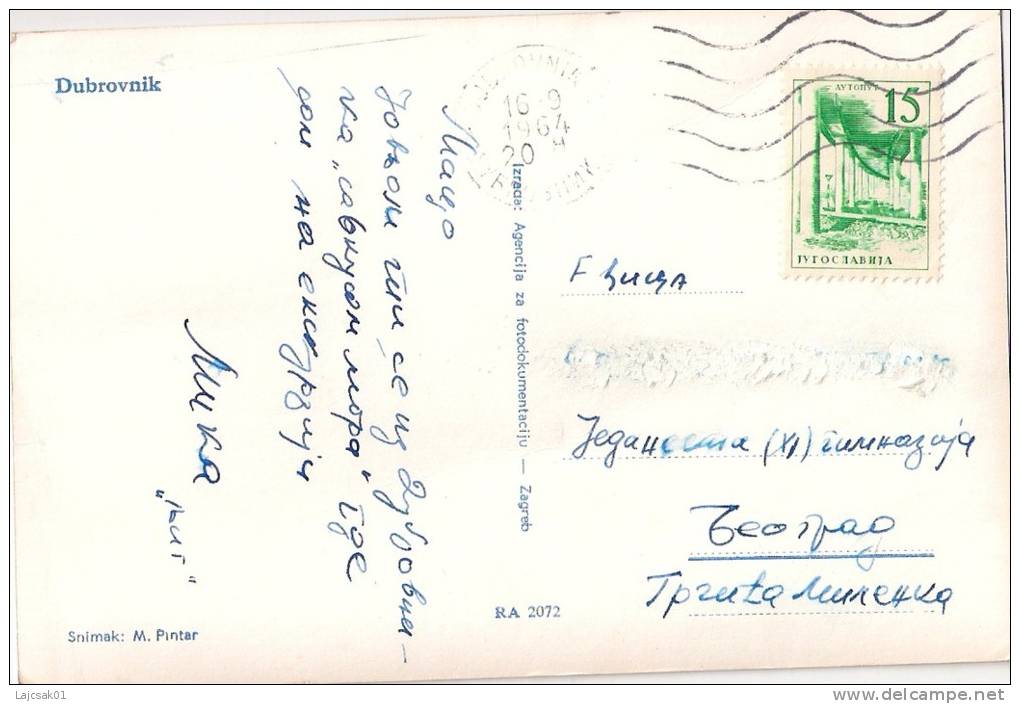 Dubrovnik
Мацо
Јављам ти се из Дубровни-
ка „
мора" где
сам на екскурзији
Мика
Snimak: M. Pintar
Izrada: Agencija za fotodokumentaciju — Zagreb
RA 2072
16 9
1964
20
АУТОПУТ
15
ЈУГОСЛАВИЈА
Једанаеста (XI) гимназија
Београд
Миленка
Lajcsak01
www.delcampe.net